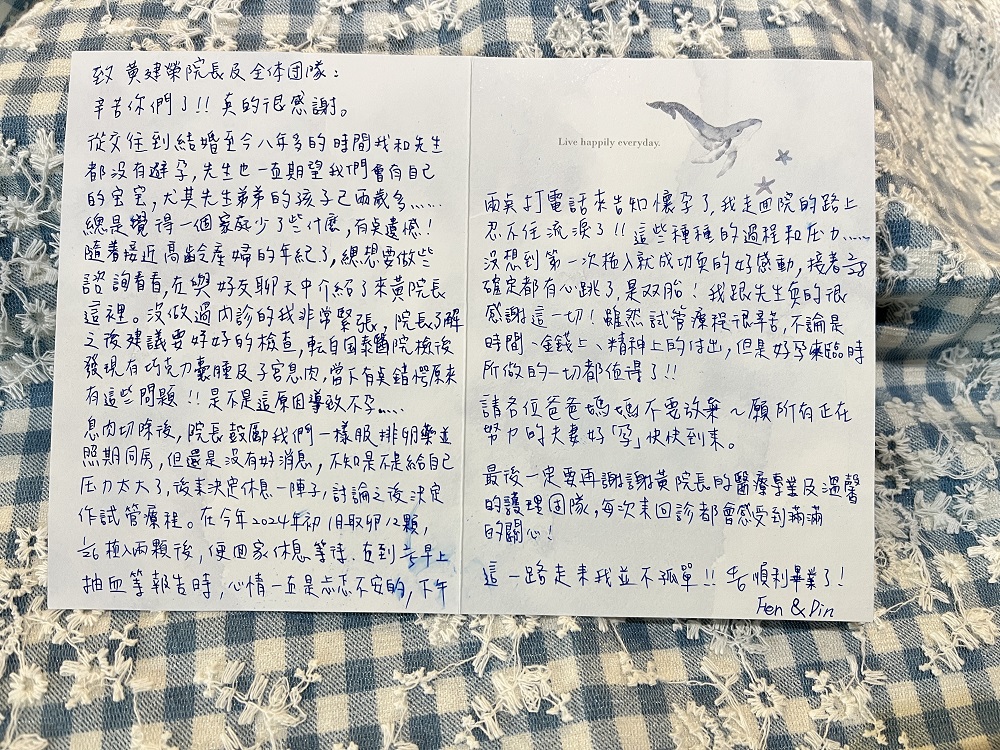 致 黃建榮院長及全体团隊：
辛苦你們了!! 真的很感謝。
從交往到結婚至今八年多的時間我和先生
都沒有避孕，先生也一直期望我們會有自己
的宝宝，尤其先生弟弟的孩子已兩歲多......
總是覺得一個家庭少了些什麼，有桌遺憾！
隨着接近高齡產婦的年紀了，總想要做些
諮詢看看，在與好友聊天中介紹了來黃院長
這裡。沒做過內診的我非常緊張，院長了解
之後建議要好好的檢查，転自国泰醫院檢後
發現有巧克力囊腫及子宮息肉，當下有桌錯愕原來
有這些問題!! 是不是這原因導致不孕.....
息肉切除後，院長鼓勵我們一樣服排卵藥並
照期同房，但還是沒有好消息，不知是不是給自己
压力太大了，後來決定休息一陣子，討論之後決定
作試管療程。在今年2024年初 1月取卵12顆，
植入兩顆後，便回家休息等待．在到 早上
抽血等報告時，心情一直是忐忑不安的，下午
Live happily everyday.
兩桌打電話來告知懷孕了，我走回院的路上
忍不住流淚了!! 這些種種的過程和压力.....
沒想到第一次植入就成功真的好感動，接着
確定都有心跳了，是双胎！我跟先生真的很
感謝這一切！雖然試管療程很辛苦，不論是
時間、金錢上、精神上的付出，但是好孕來臨時
所做的一切都值得了!!
請各位爸爸媽媽不要放棄～願所有正在
努力的夫妻好「孕」快快到來。
最後一定要再謝謝黃院長的醫療專業及溫馨
的護理团隊，每次來回診都會感受到滿滿
的關心！
這一路走來我並不孤單!! 順利畢業了！
Fen & Pin